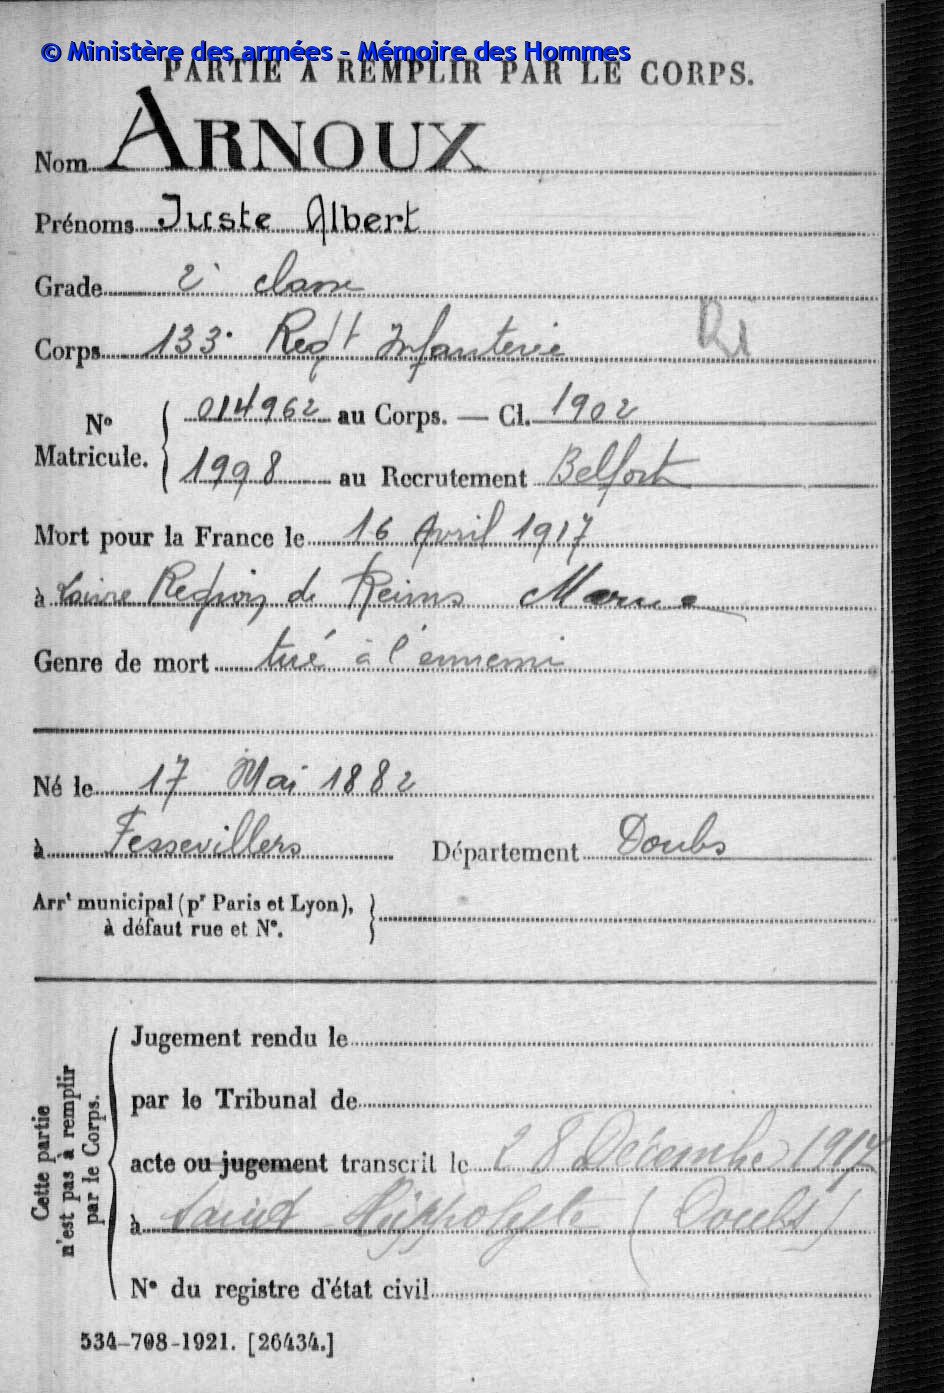 © Ministère des armées - Mémoire des Hommes
PARTIE A REMPLIR PAR LE CORPS.
Nom ARNOUX
Prénoms Juste Albert
Grade 2e classe
Corps 133e Regt Infanterie
R1
No Matricule. { 014962 au Corps. — Cl. 1902
1998 au Recrutement Belfort
Mort pour la France le 16 Avril 1917
à Loivre Region de Reims Marne
Genre de mort tué à l'ennemi
Né le 17 Mai 1882
à Fessevillers Département Doubs
Arrt municipal (pr Paris et Lyon), }
à défaut rue et No.
Cette partie n'est pas à remplir par le Corps.
Jugement rendu le
par le Tribunal de
acte ou jugement transcrit le 28 Décembre 1917
à Saint Hippolyte (Doubs)
No du registre d'état civil
534-708-1921. [26434.]